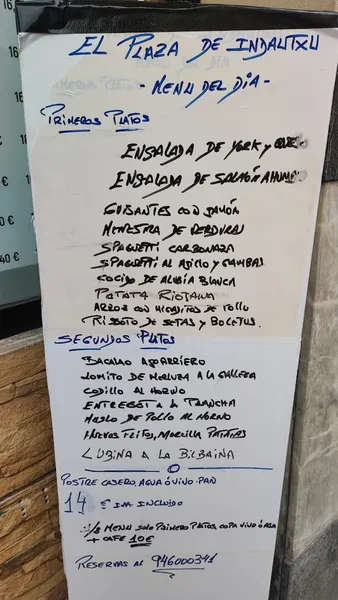 EL PLAZA DE INDAUTXU
- MENU DEL DÍA -
PRIMEROS PLATOS
ENSALADA DE YORK y QUESO
ENSALADA DE SALMÓN AHUMADO
GUISANTES CON JAMÓN
MENESTRA DE VERDURAS
SPAGUETTI CARBONARA
SPAGUETTI AL AJILLO y GAMBAS
COCIDO DE ALUBIA BLANCA
PATATA RIOJANA
ARROZ CON HIGADITOS DE POLLO
RISSOTO DE SETAS y BOLETUS.
SEGUNDOS PLATOS
BACALAO AJOARRIERO
LOMITO DE MERLUZA A LA GALLEGA
CODILLO AL HORNO
ENTRECOT A LA PLANCHA
MUSLO DE POLLO AL HORNO
HUEVOS FRITOS, MORCILLA PATATAS
LUBINA A LA BILBAINA
POSTRE CASERO, AGUA ó VINO - PAN
14 € IVA. INCLUIDO
1/2 MENU SOLO PRIMERO PLATOS, COPA VINO ó AGUA
+ CAFE 10€
RESERVAS AL 946000341